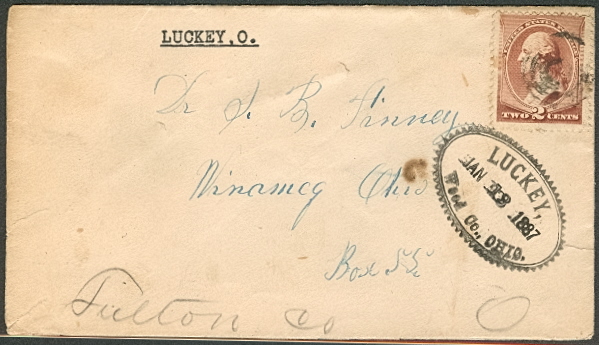 LUCKEY, O.
UNITED STATES
TWO 2 CENTS
Dr S. B. Finney
Winameg Ohio
Box 55
LUCKEY,
JAN 1887
Wood Co., OHIO.
Fulton Co O